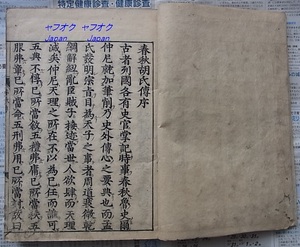 特定健康診査・健康診査
ヤフオク ヤフオク
Japan Japan
春秋胡氏傳序
古者列國各有史官掌記時事春秋魯史爾
仲尼就加筆削乃史外傳心之要典也而孟
氏發明宗旨目為天子之事者周道衰微乾
綱解紐亂臣賊子接迹當世人欲肆而天理
滅矣仲尼天理之所在不以為已任而誰可
五典弗惇已所當叙五禮弗庸已所當秩五
服弗章已所當命五刑弗用已所當討故曰